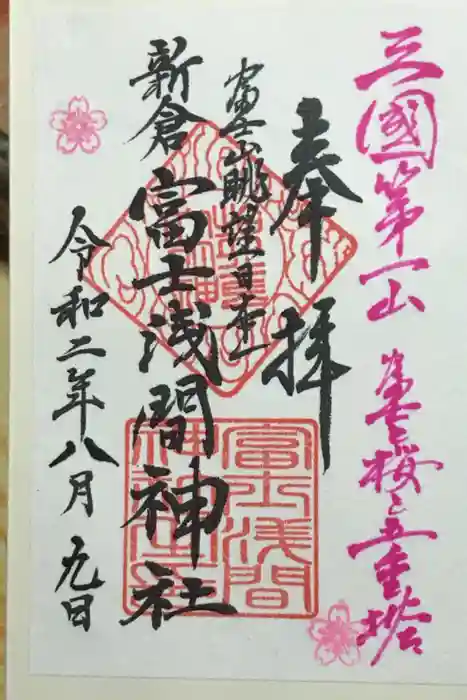 三國第一山 富士と桜と五重塔
奉拝
富士山眺望日本一
新倉 富士浅間神社
令和二年八月九日
富士浅間